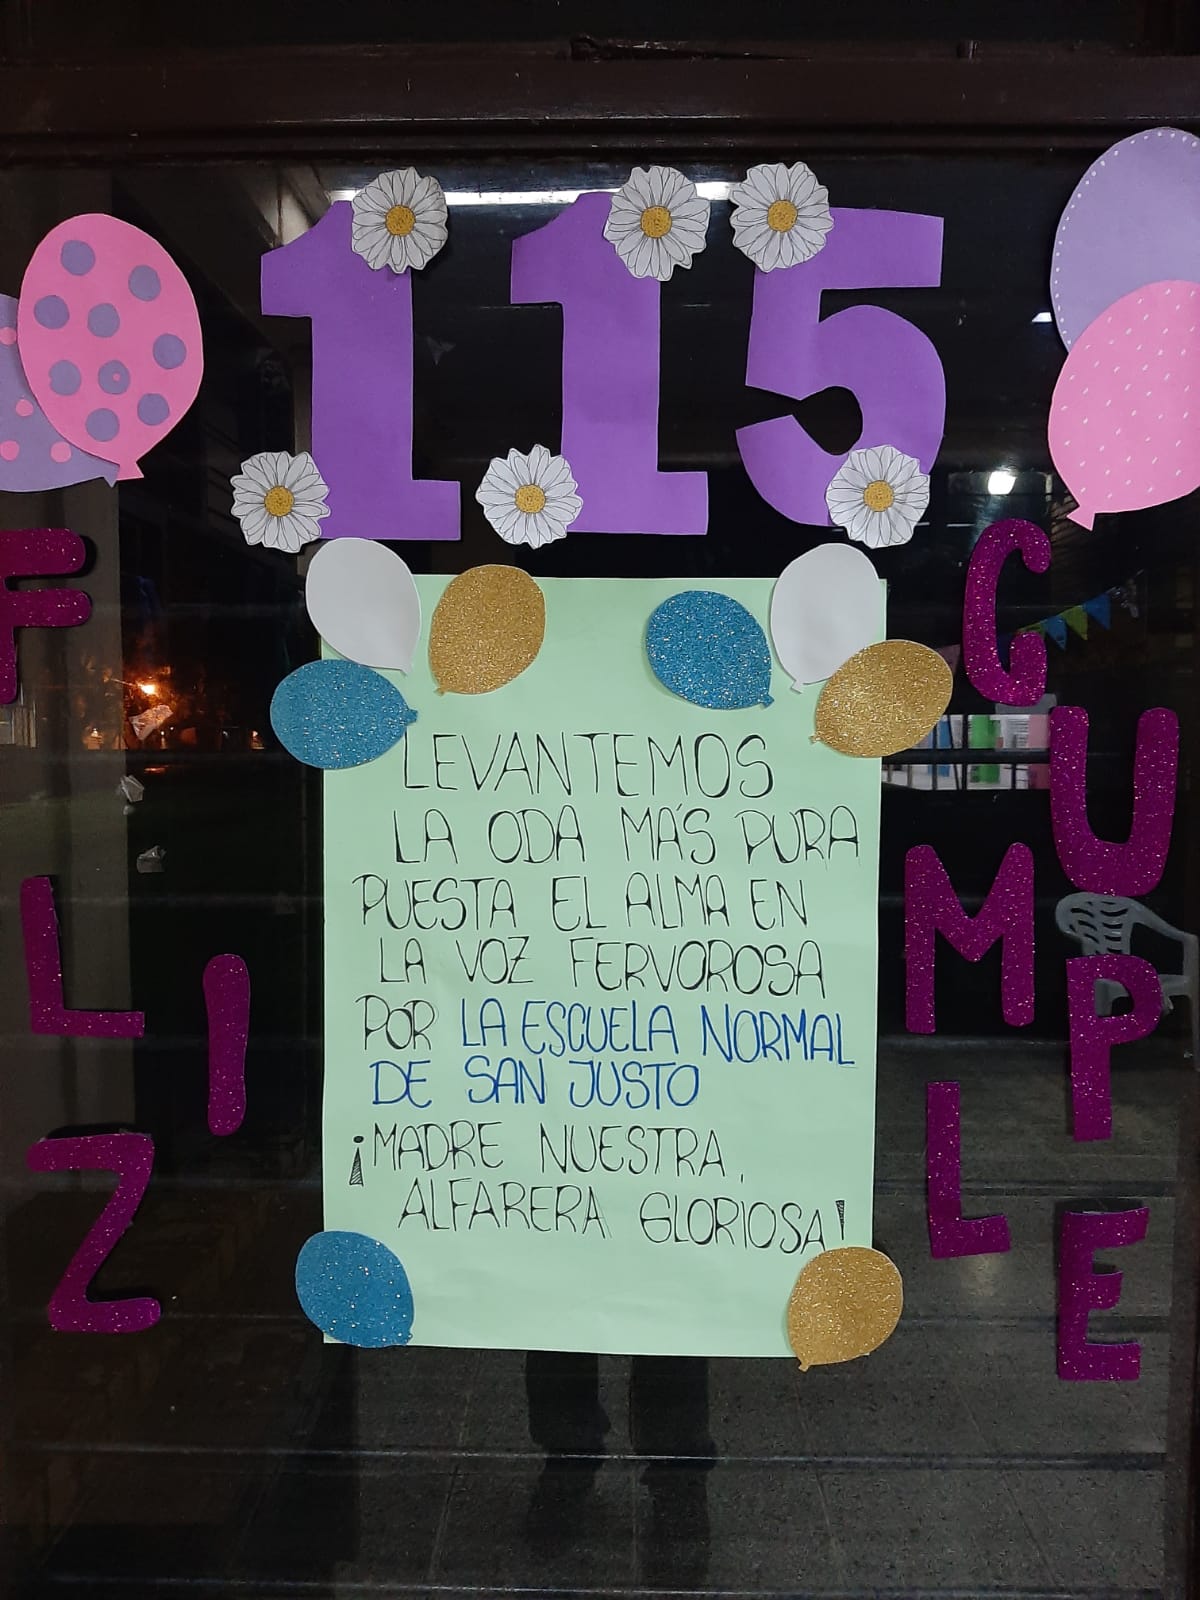 115
F LIZ
CUMPLE
LEVANTEMOS
LA ODA MÁS PURA
PUESTA EL ALMA EN
LA VOZ FERVOROSA
POR LA ESCUELA NORMAL
DE SAN JUSTO
¡MADRE NUESTRA,
ALFARERA GLORIOSA!